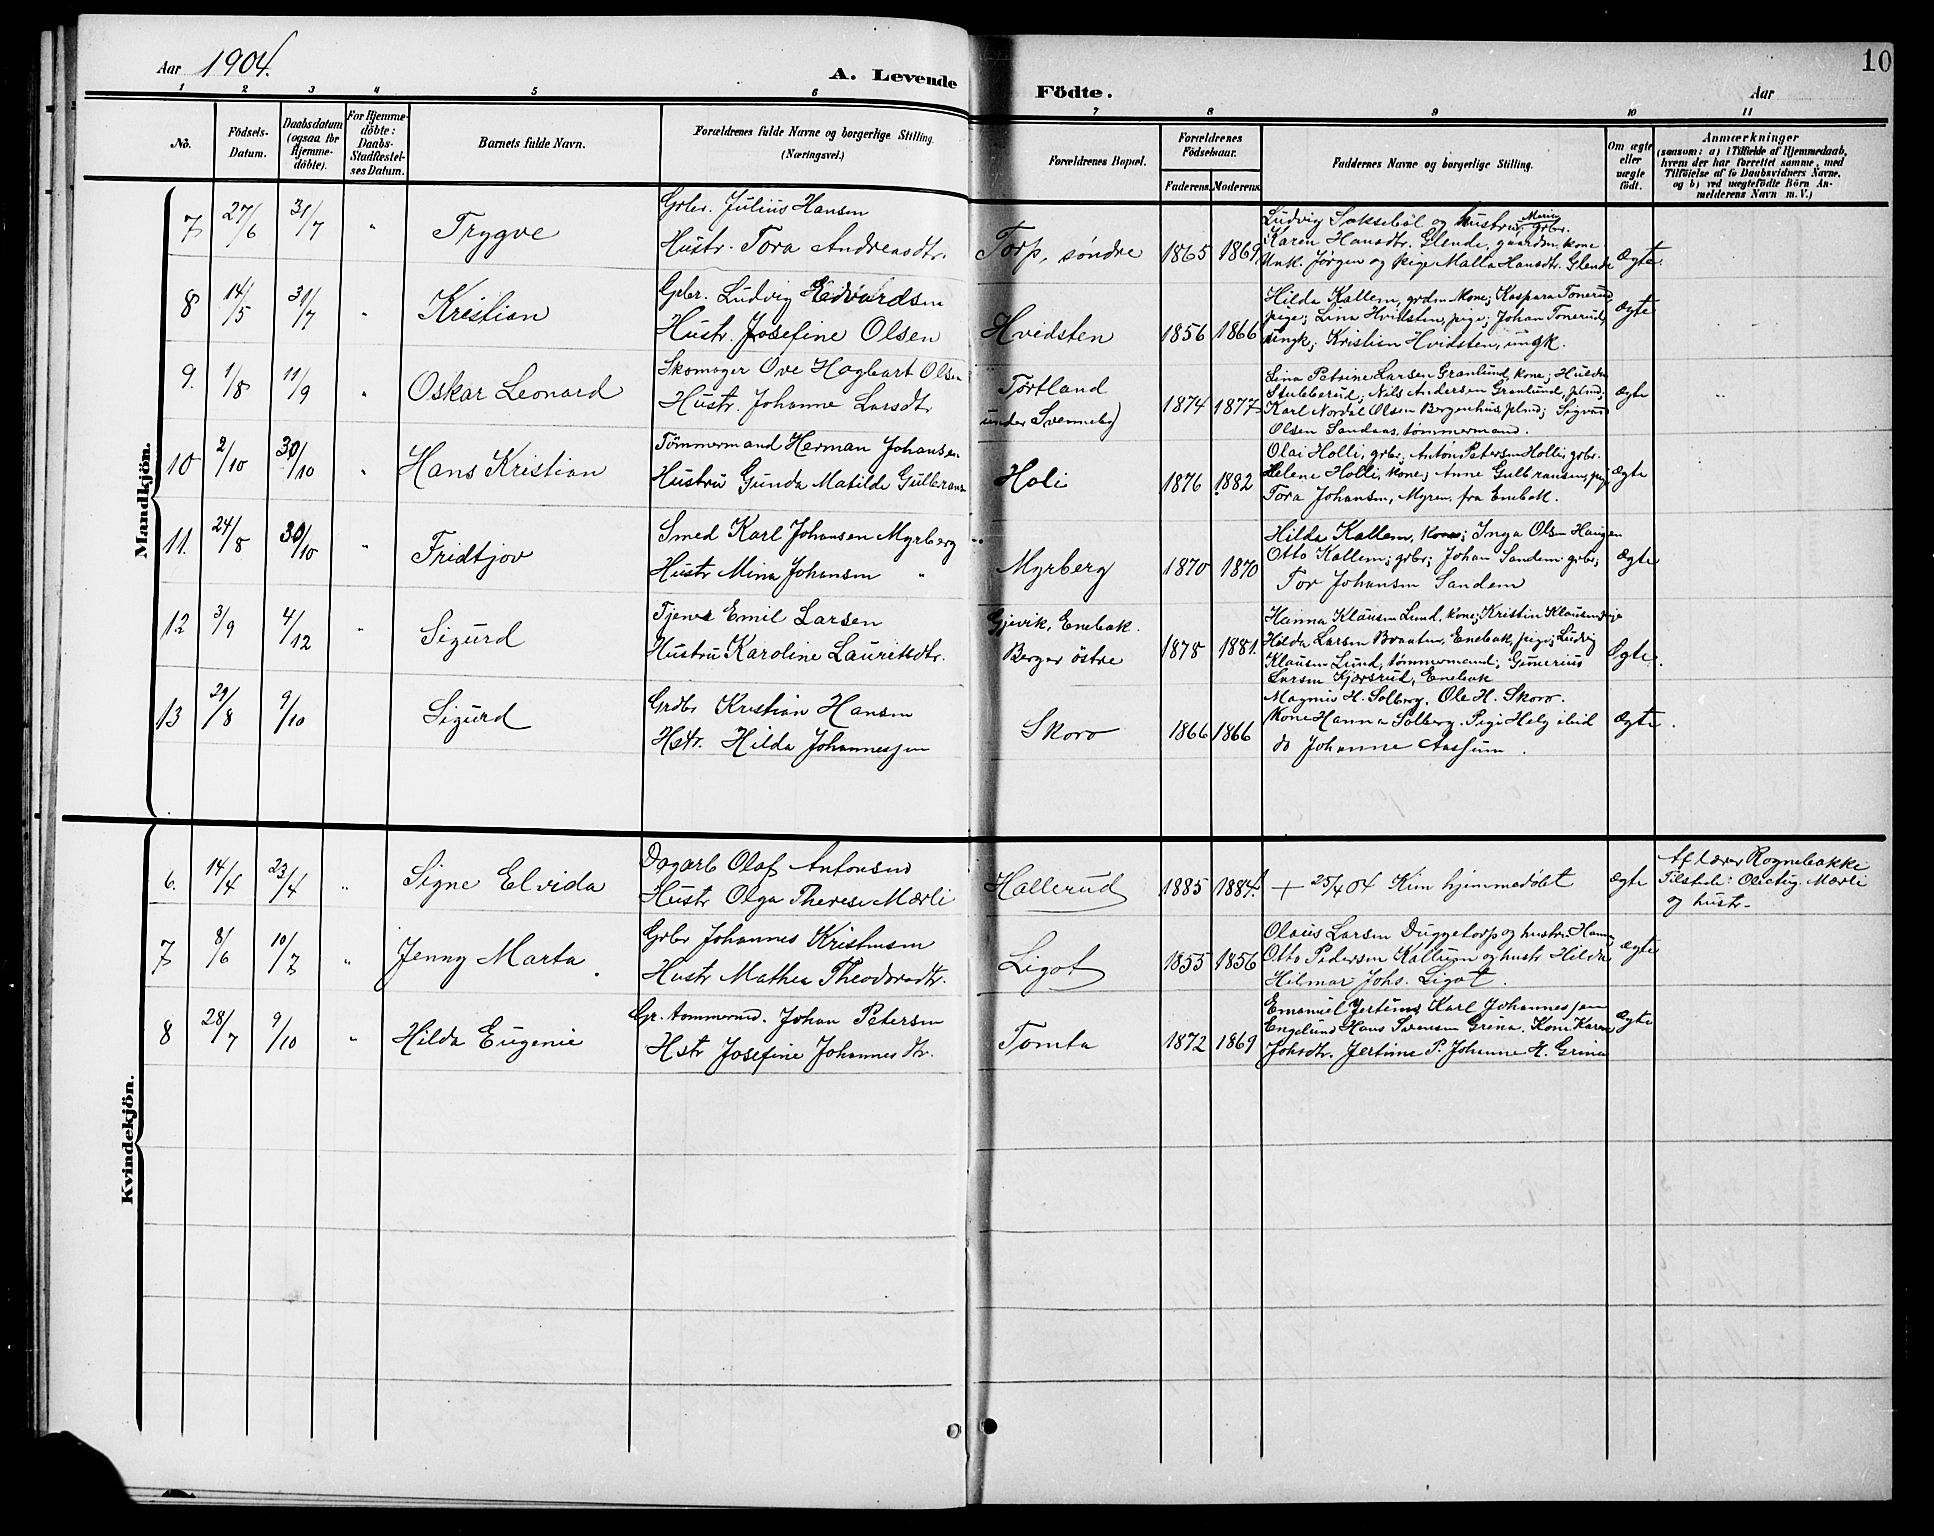 Aar 1904.
A. Levende Födte.
Aar
10
1 2 3 4 5 6 7 8 9 10 11
No.
Födsels-Datum.
Daabsdatum (ogsaa for Hjemmedöbte).
For Hjemmedöbte: Daabs-Stadfæstelses Datum.
Barnets fulde Navn.
Forældrenes fulde Navne og borgerlige Stilling. (Næringsvei.)
Forældrenes Bopæl.
Forældrenes Födselsaar.
Faderens. Moderens.
Faddernes Navne og borgerlige Stilling.
Om ægte eller uægte født.
Anmærkninger
(saasom: a) i Tilfælde af Hjemmedaab, hvem der har forrettet samme, med Tilföielse af to Daabsvidners Navne, og b) ved uægtefödte Börn Anmelderens Navn m. V.)
Mandkjön.
7 27/6 31/7 " Trygve
Grbr. Julius Hansen
Hustr. Tora Andreasdtr.
Torp, søndre 1865 1869
Ludvig Saksebøl og hustru grbr.
Karen Hansdtr. Glende, gaardm. kone
Unk. Jørgen og pige Malla Hansdtr. Glende
Ægte.
8 14/5 31/7 " Kristian
Gbr. Ludvig Edvardsen
Hustr. Josefine Olsen
Hvidsten 1856 1866
Hilda Kallem, grdm Kone; Kaspara Tonerud
pige; Lina Hvidsten, pige; Johan Tonerud,
ungk; Kristian Hvidsten, ungk.
Ægte
9. 1/8 11/9 " Oskar Leonard
Skomager Ove Hagbart Olsen
Hustr. Johanne Larsdtr
Tortland
under Svenneby 1874 1877
Lina Petrine Larsen Granlund, kone; Hulda
Stubberud; Nils Andersen Granlund, plmd;
Karl Nordal Olsen Bergenhus plmd; Sigvard
Olsen Sandaas, tømmermand.
Ægte
10 2/10 30/10 " Hans Kristian
Tømmermand Herman Johansen
Hustru Gunda Matilde Gulbrans
Holi 1876 1882
Olai Holli, grbr; Anton Petersen Holli, grbr.
Helene Holli, kone; Anne Gulbransen, pige
Tora Johansen, Myren, fra Enebak.
Ægte
11. 24/8 30/10 " Fridtjov
Smed Karl Johansen Myrberg
Hustr Mina Johansen "
Myrberg 1870 1870
Hilda Kallem, kone; Inga Olsen Haugen
Otto Kallem; grbr; Johan Sandem grbr;
Tor Johansen Sandem
Ægte
12 3/9 4/12 " Sigurd
Tjener Emil Larsen
Hustru Karoline Lauritsdtr.
Gjevik, Enebak.
Berger østre 1878 1881.
Hanna Klausen Lund, kone; Kristin Klausen, pige
Hilda Larsen Braaten, Enebak, pige; Ludvig
Klausen Lund, tømmermand; Gunerius
Larsen Kjærsrud, Enebak
Ægte.
13 29/8 9/10 Sigurd
Grdbr Kristian Hansen
Hstr. Hilda Johannessen
Skoro 1866 1866
Magnus H. Solberg. Ole H. Skoro.
Kone Hanna Solberg. Pige Helg ibid
do Johanne Aassum.
Ægte.
Kvindekjön.
6. 14/4 23/4 " Signe Elvida
Dagarb Olaf Antonsen
Hustr Olga Therese Mærli
Hallerud 1885 1884.
+ 25/4 04 Kun hjemmedøbt
Ægte
Af lærer Rognebakke
Tilstede: Mærli
og hustr.
7 8/6 10/7 " Jenny Marta.
Grbr Johannes Kristensen
Hustr Mathea Theodorsdtr.
Ligot 1855 1856
Olaus Larsen Duggetorp og hustru Hanna
Otto Pedersen Kallum og hustr Hilda
Hilmar Johs. Ligot.
Ægte
8 28/7 9/10 " Hilda Eugenie
Gr. tømmermd. Johan Petersen
Hstr Josefine Johannesdtr.
Tomta 1872 1869
Emanuel Jertem, Karl Johannessen
Engelund Hans Svensen Grina. Kone Karen
Johsdtr. Johanne H. Grina
Ægte